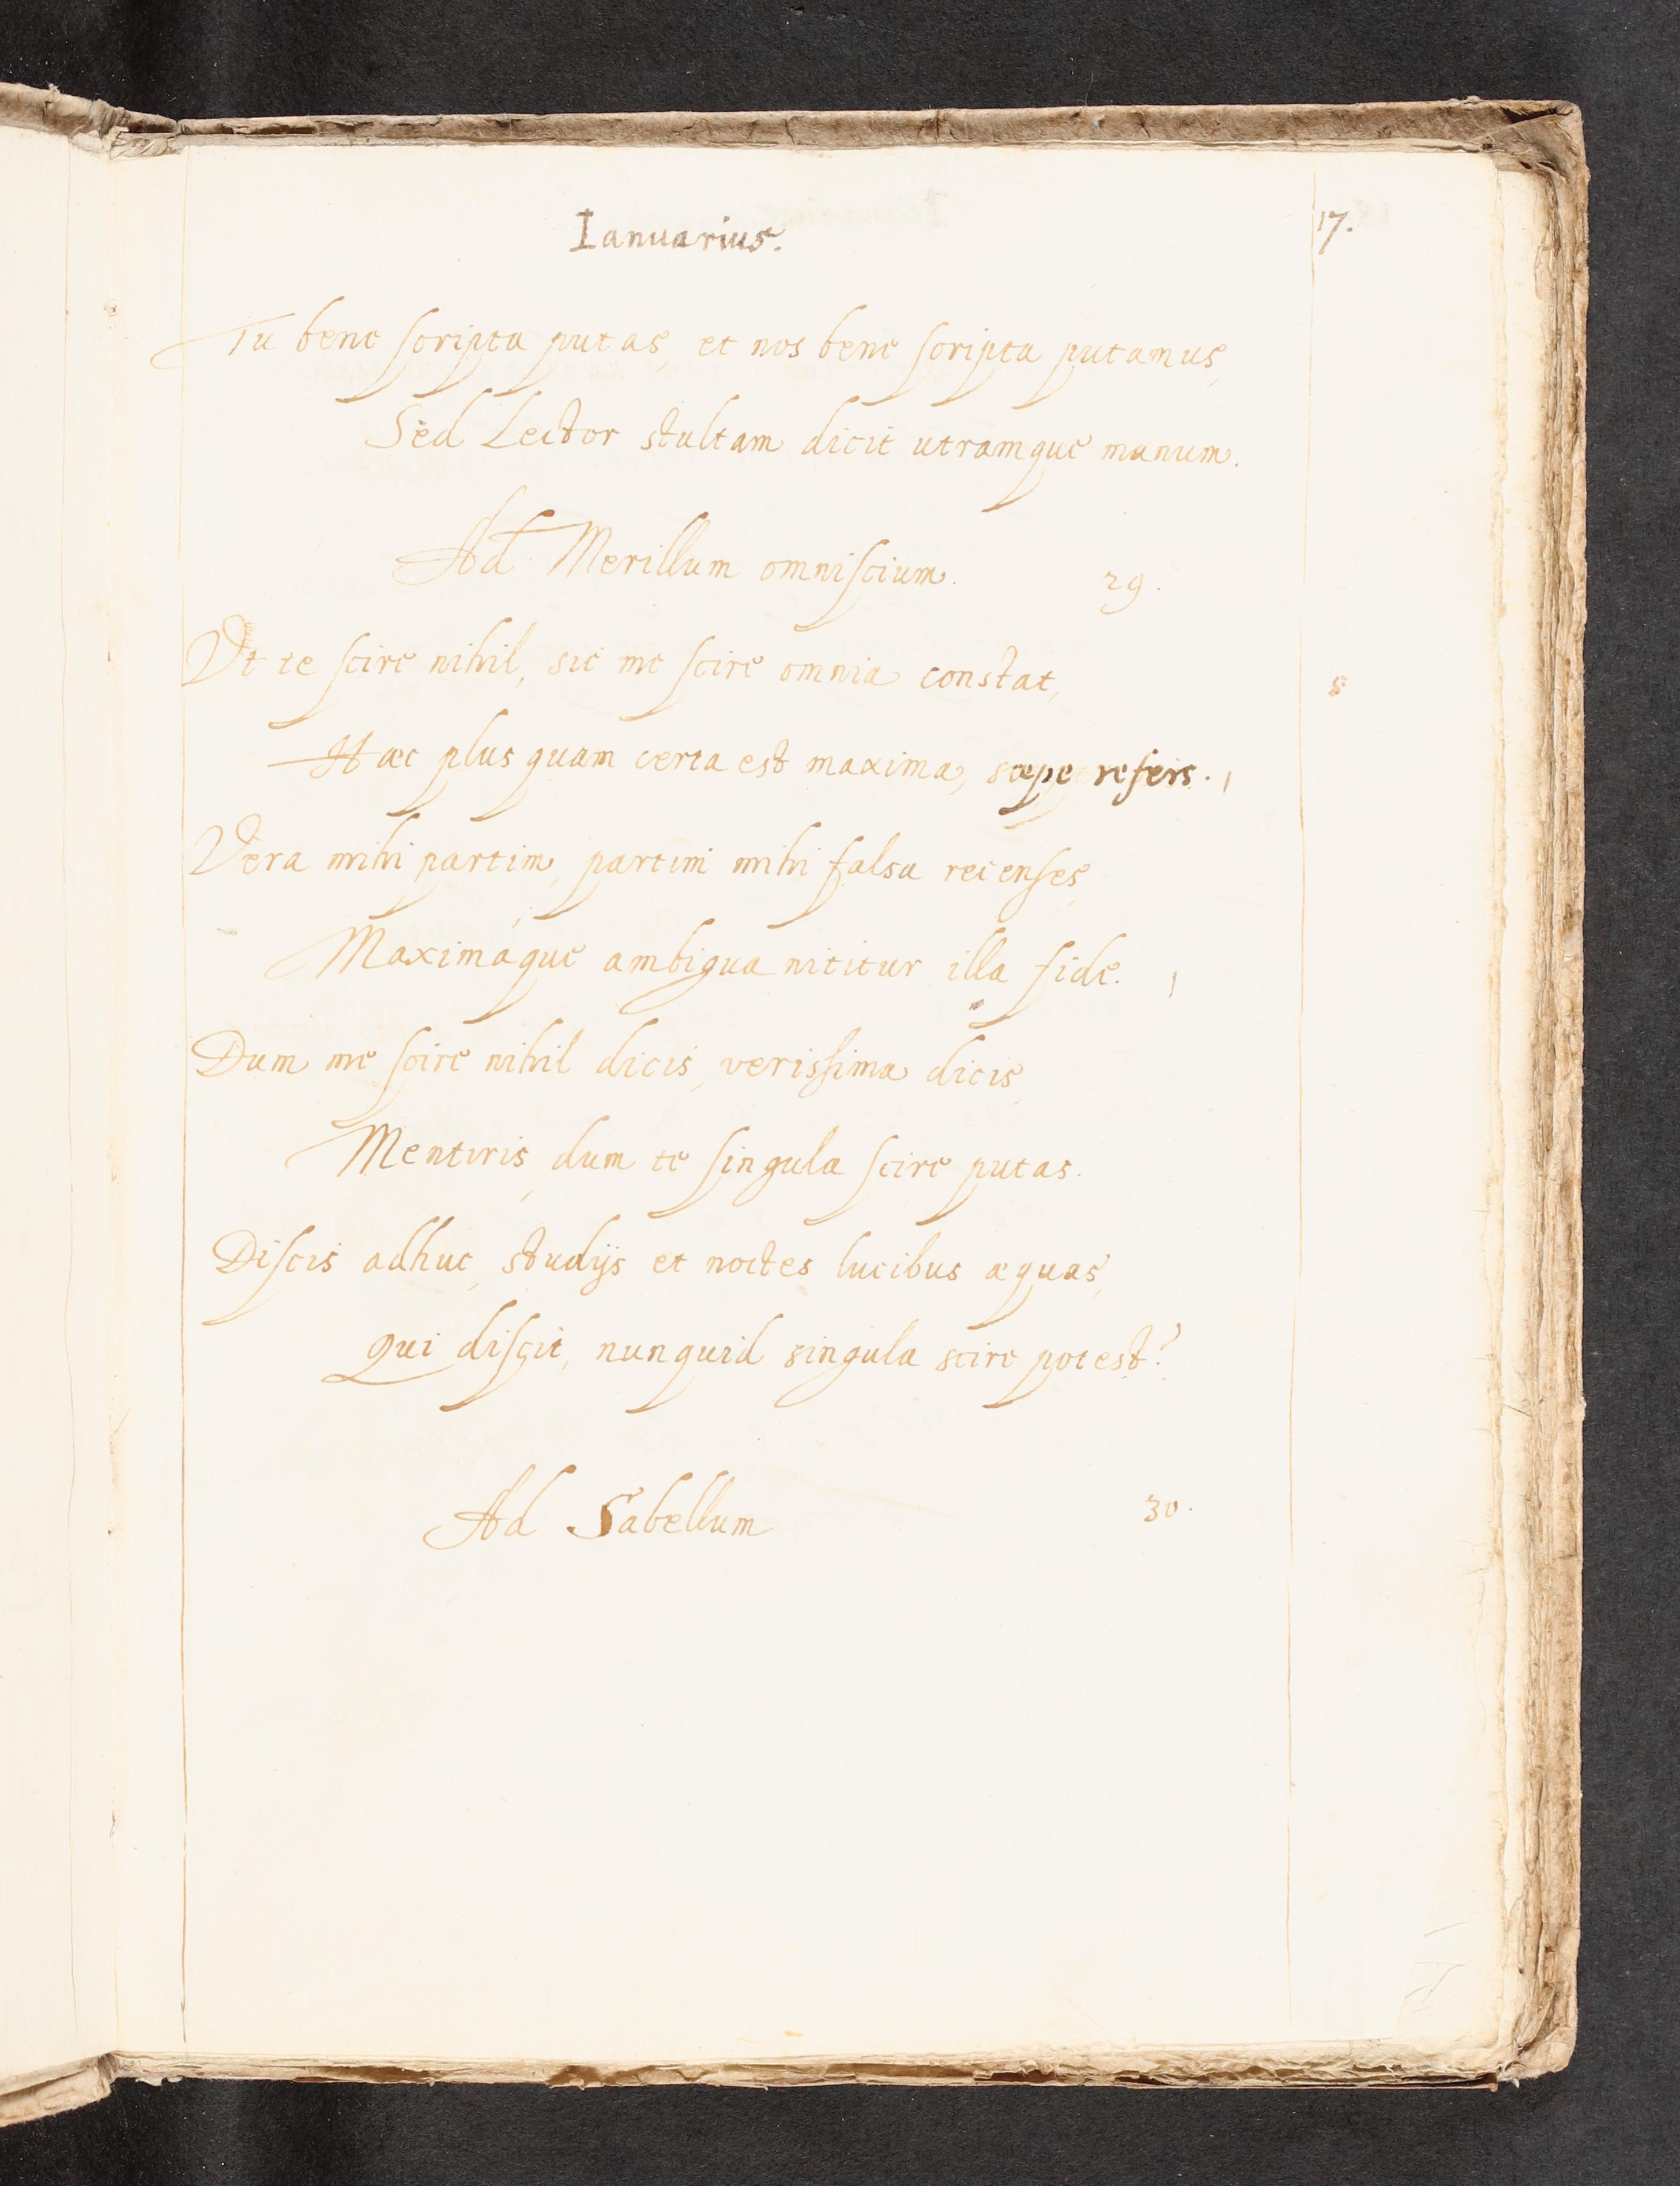 Ianuarius. 17.
Tu bene scripta putas, et nos bene scripta putamus,
Sed Lector stultam dicit utramque manum.
Ad Merillum omniscium. 29.
Vt te scire nihil, sic me scire omnia constat, 8
Hæc plus quam certa est maxima, sæpe refers.
Vera mihi partim, partim mihi falsa recenses,
Maximáque ambigua nititur illa fide.
Dum me scire nihil dicis, verissima dicis,
Mentiris, dum te singula scire putas.
Discis adhuc, studijs et noctes lucibus æquas,
Qui discit, nunquid singula scire potest?
Ad Sabellum 30.